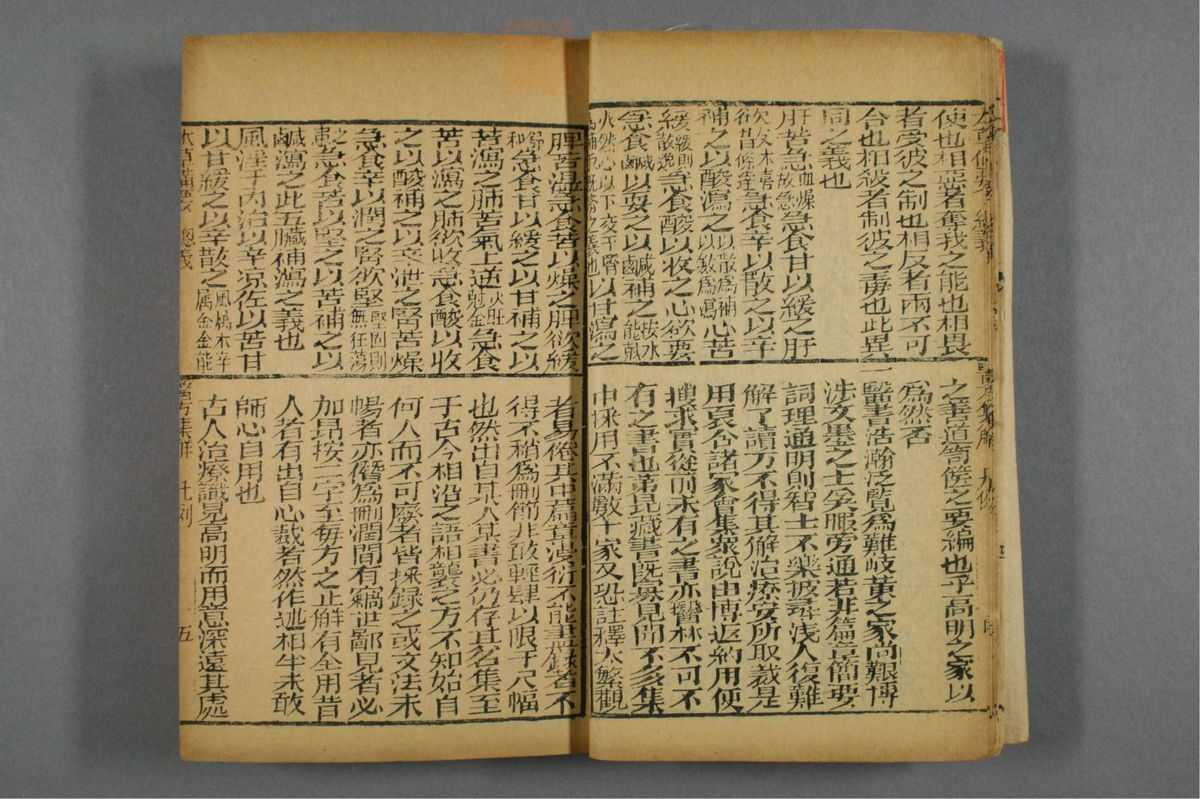 本草備要 總義
使也相惡者奪我之能也相畏
者受彼之制也相反者兩不可
合也相殺者制彼之毒也此異
同之義也
肝苦急血燥故急急食甘以緩之肝
欲散木喜條達急食辛以散之以辛
補之以酸瀉之以散爲補以斂爲瀉心苦
緩緩則散逸急食酸以收之心欲耎
急食鹹以耎之以鹹補之按水能尅
火然心以下交于腎爲補乃旣濟之義也以甘瀉之
脾苦濕急食苦以燥之脾欲緩
舒和急食甘以緩之以甘補之以
苦瀉之肺苦氣上逆火旺尅金急食
苦以瀉之肺欲收急食酸以收
之以酸補之以辛泄之腎苦燥
急食辛以潤之腎欲堅堅固則無狂蕩
之患急食苦以堅之以苦補之以
鹹瀉之此五臟補瀉之義也
風淫于內治以辛凉佐以苦甘
以甘緩之以辛散之風屬木辛屬金金能
本草備要 總義
醫方集解 凡例
之善道寄傍之要編也乎高明之家以
爲然否
醫書浩瀚泛覽爲難岐黃之家尚艱博
涉文墨之士奚暇旁通若非篇章簡要
詞理通明則智士不樂披尋淺人復難
解了讀方不得其解治療安所取裁是
用裒合諸家會集衆說由博返約用便
搜求實從前未有之書亦醫林不可不
有之書也第昆藏書旣寡見聞不多集
中採用不滿數十家又恐註釋太繁觀
者易倦其中篇章漫衍不能盡錄者不
得不稍爲刪節非敢輕肆以限于尺幅
也然出自某人某書必仍存其名集至
于古今相沿之語相襲之方不知始自
何人而不可廢者皆採錄之或文法未
暢者亦僭爲刪潤間有竊世鄙見者必
加昂按二字至每方之正解有全用昔
人者有出自心裁者然作述相半未敢
師心自用也
古人治療識見高明而用意深遠其處
醫方集解 凡例 五